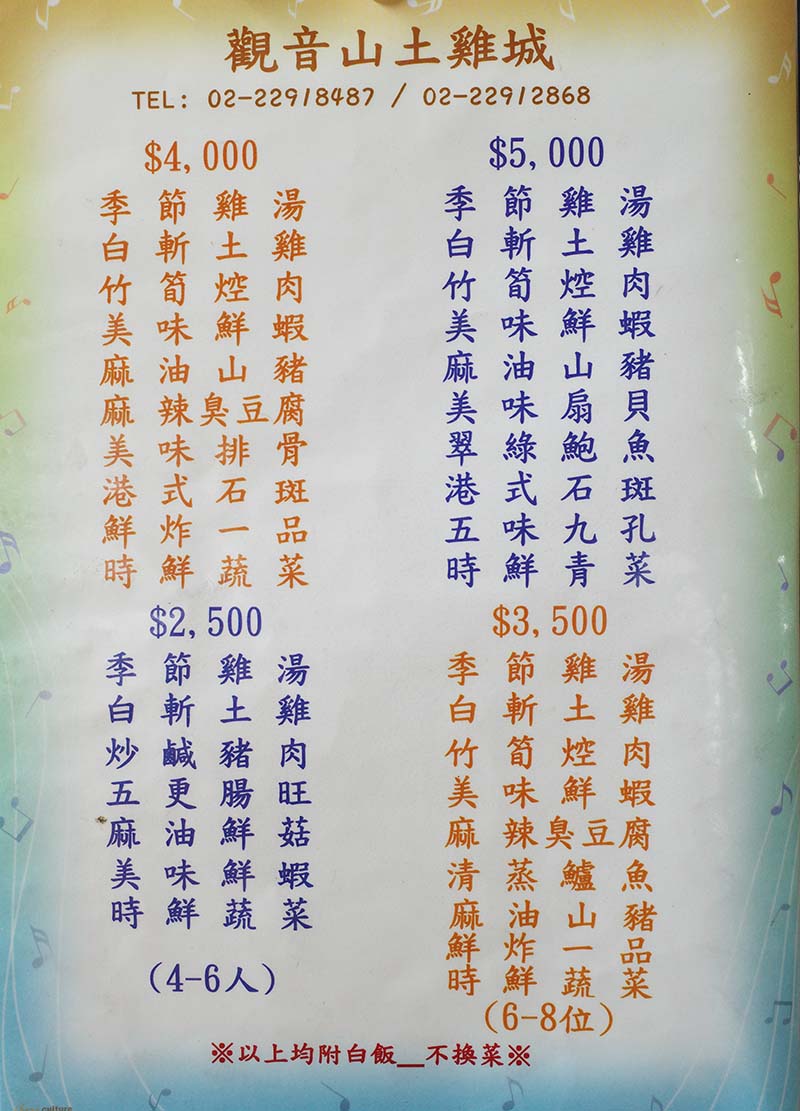 觀音山土雞城
TEL: 02-22918487 / 02-22912868
$4,000
季節雞湯
白斬土雞
竹筍焢肉
美味鮮蝦
麻油山豬
麻辣臭豆腐
美味排骨
港式石斑
鮮炸一品
時鮮蔬菜
$5,000
季節雞湯
白斬土雞
竹筍焢肉
美味鮮蝦
麻油山豬
美味扇貝
翠綠鮑魚
港式石斑
五味九孔
時鮮青菜
$2,500
季節雞湯
白斬土雞
炒鹹豬肉
五更腸旺
麻油鮮菇
美味鮮蝦
時鮮蔬菜
(4-6人)
$3,500
季節雞湯
白斬土雞
竹筍焢肉
美味鮮蝦
麻辣臭豆腐
清蒸鱸魚
麻油山豬
鮮炸一品
時鮮蔬菜
(6-8位)
※以上均附白飯__不換菜※
culture